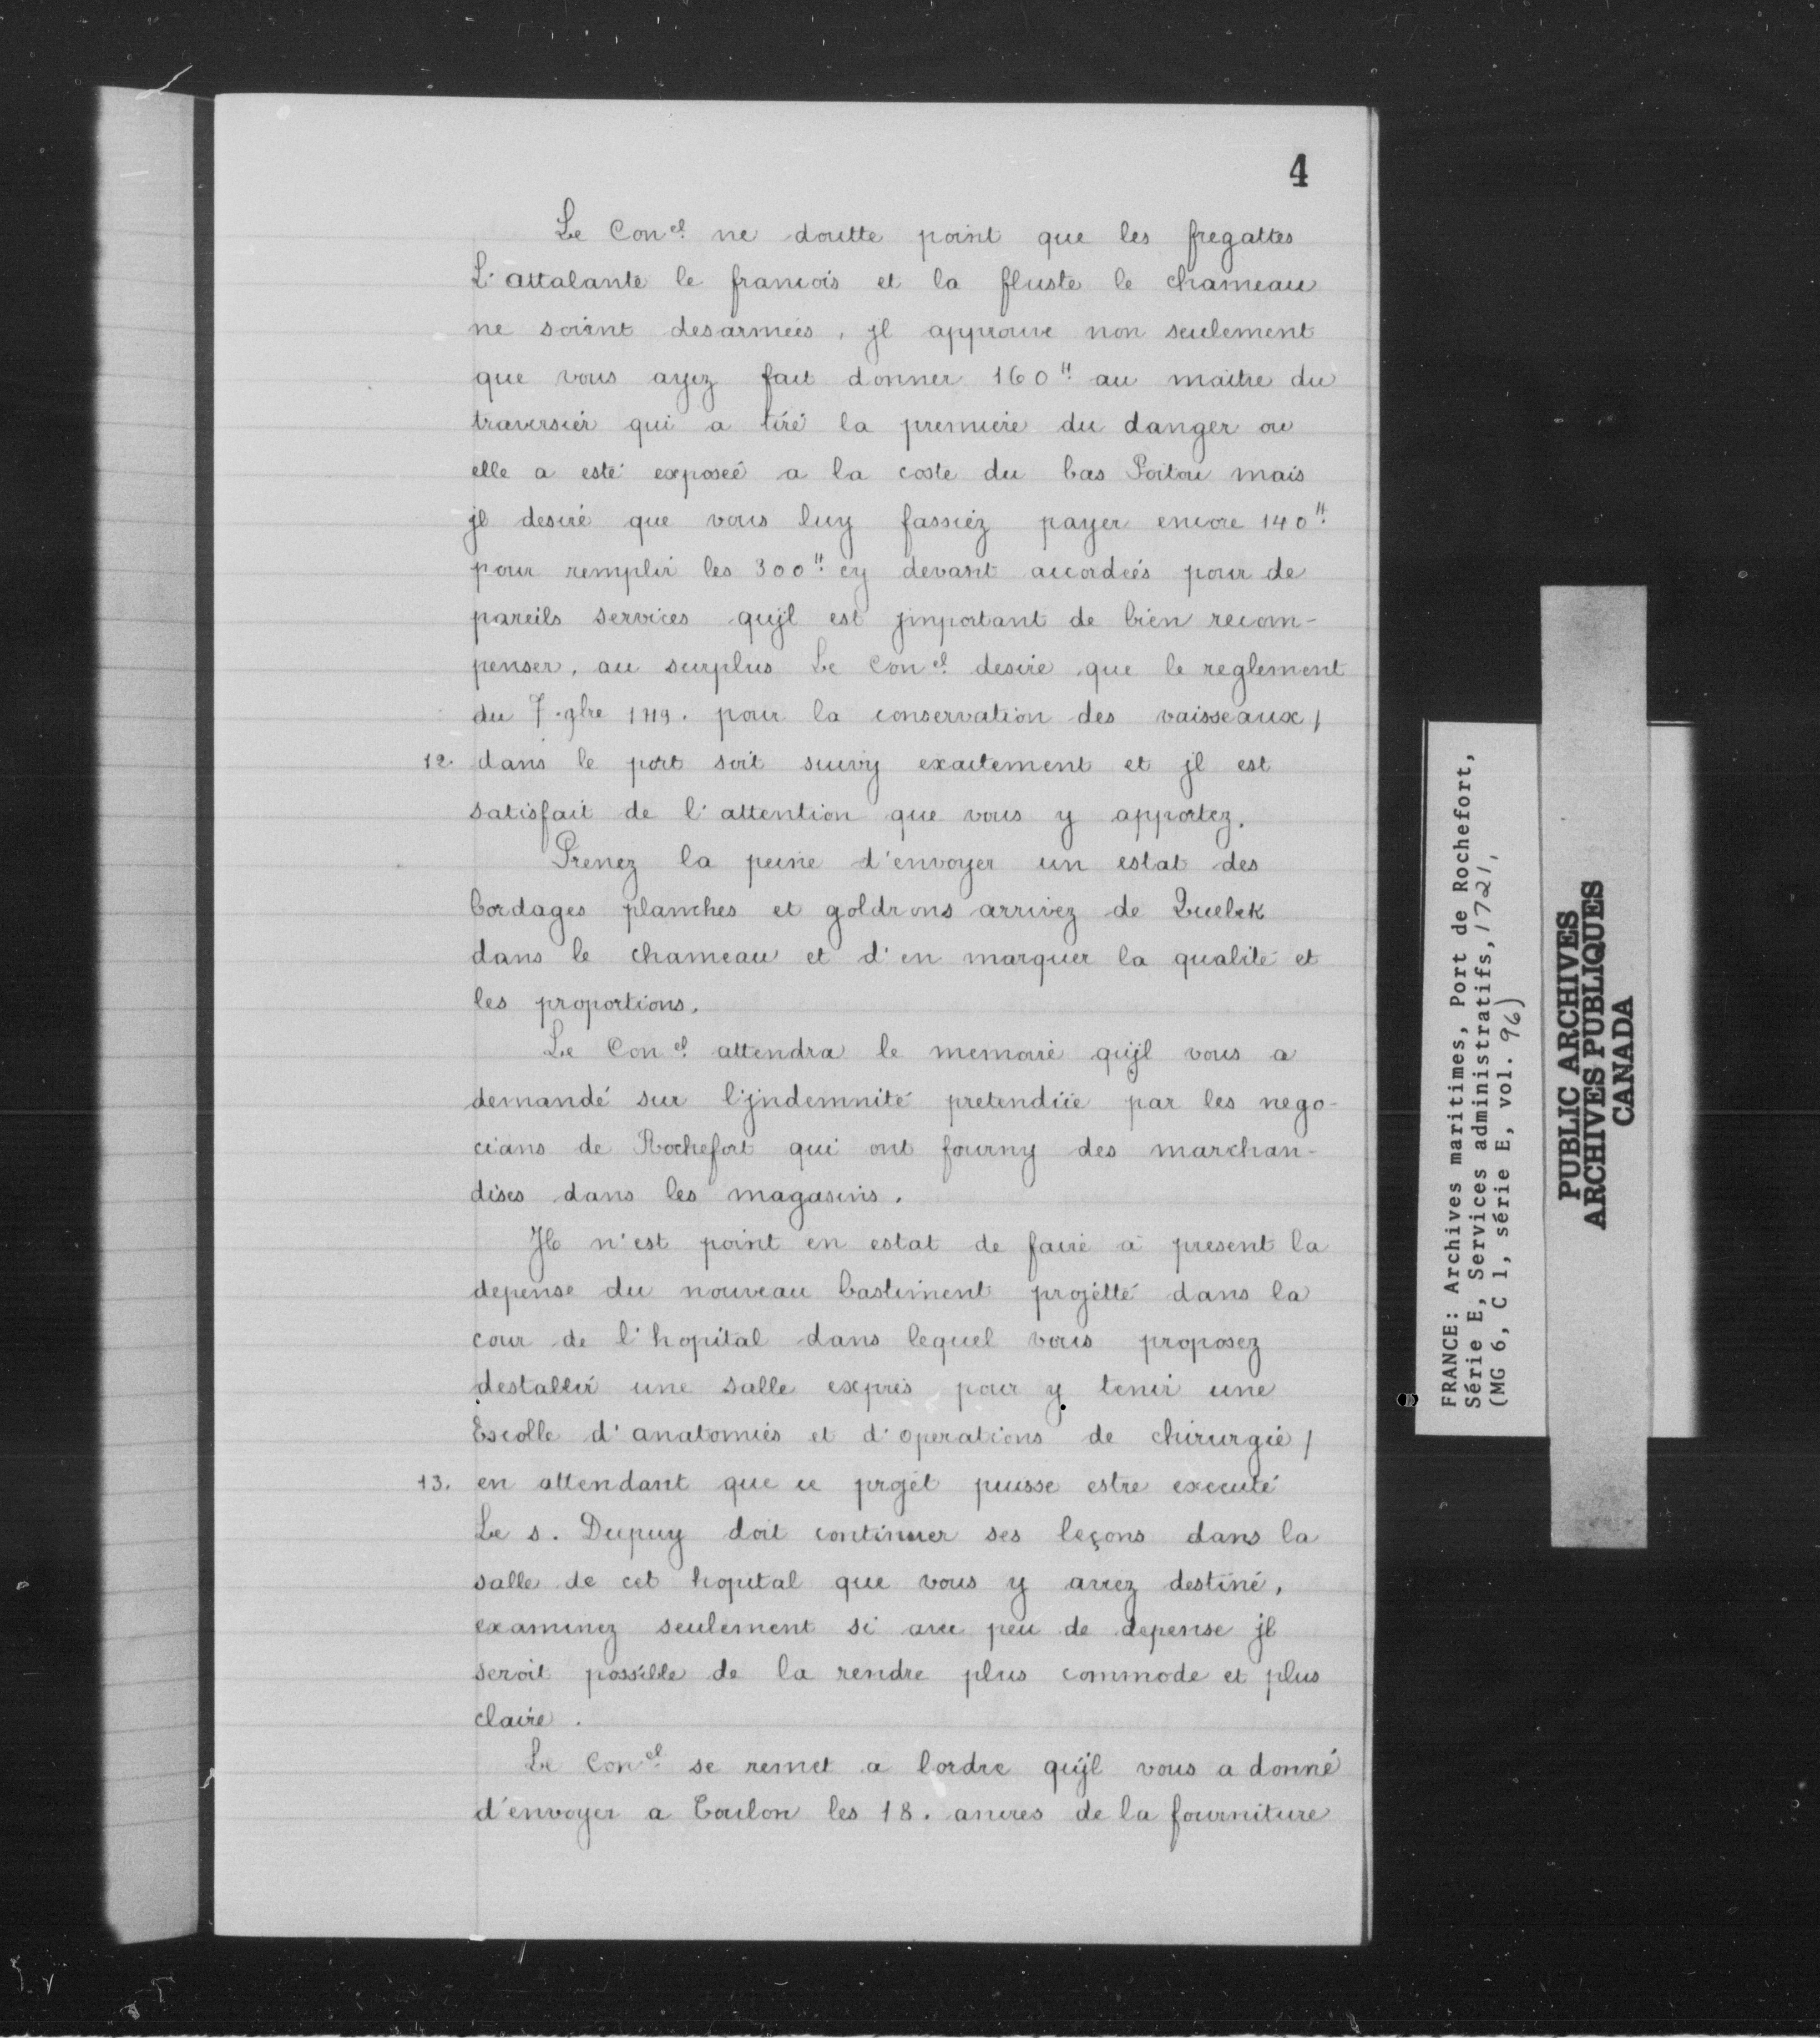 4
Le Con.el ne doutte point que les fregattes
L'attalante le francois et la fluste le chameau
ne soient desarmées, jl approuve non seulement
que vous ayez fait donner 160ᵗᵗ au maitre du
traversier qui a tiré la premiere du danger ou
elle a esté exposeé a la coste du bas Poitou mais
jl desire que vous luy fassiez payer encore 140ᵗᵗ
pour remplir les 300ᵗᵗ cy devant accordées pour de
pareils services qu'jl est jmportant de bien recom-
penser, au surplus Le Con.el desire que le reglement
du 7.gbre 1719. pour la conservation des vaisseaux /
12. dans le port soit suivy exactement et jl est
satisfait de l'attention que vous y apportez.
Prenez la peine d'envoyer un estat des
bordages planches et goldrons arrivez de Quebek
dans le chameau et d'en marquer la qualité et
les proportions.
Le Con.el attendra le memoire qu'jl vous a
demandé sur l'jndemnité pretendüe par les nego-
cians de Rochefort qui ont fourny des marchan-
dises dans les magasins.
Jl n'est point en estat de faire à present la
depense du nouveau bastiment projetté dans la
cour de l'hopital dans lequel vous proposez
destablir une salle exprés pour y tenir une
Escolle d'anatomies et d'operations de chirurgie /
13. en attendant que ce projet puisse estre executé
Le s. Dupuy doit continuer ses leçons dans la
salle de cet hopital que vous y avez destiné,
examinez seulement si avec peu de depense jl
seroit possible de la rendre plus commode et plus
claire.
Le Con.el se remet a lordre qu'jl vous a donné
d'envoyer a Toulon les 18. ancres de la fourniture
FRANCE: Archives maritimes, Port de Rochefort,
Série E, Services administratifs, 1721,
(MG 6, C 1, série E, vol. 96)
PUBLIC ARCHIVES
ARCHIVES PUBLIQUES
CANADA